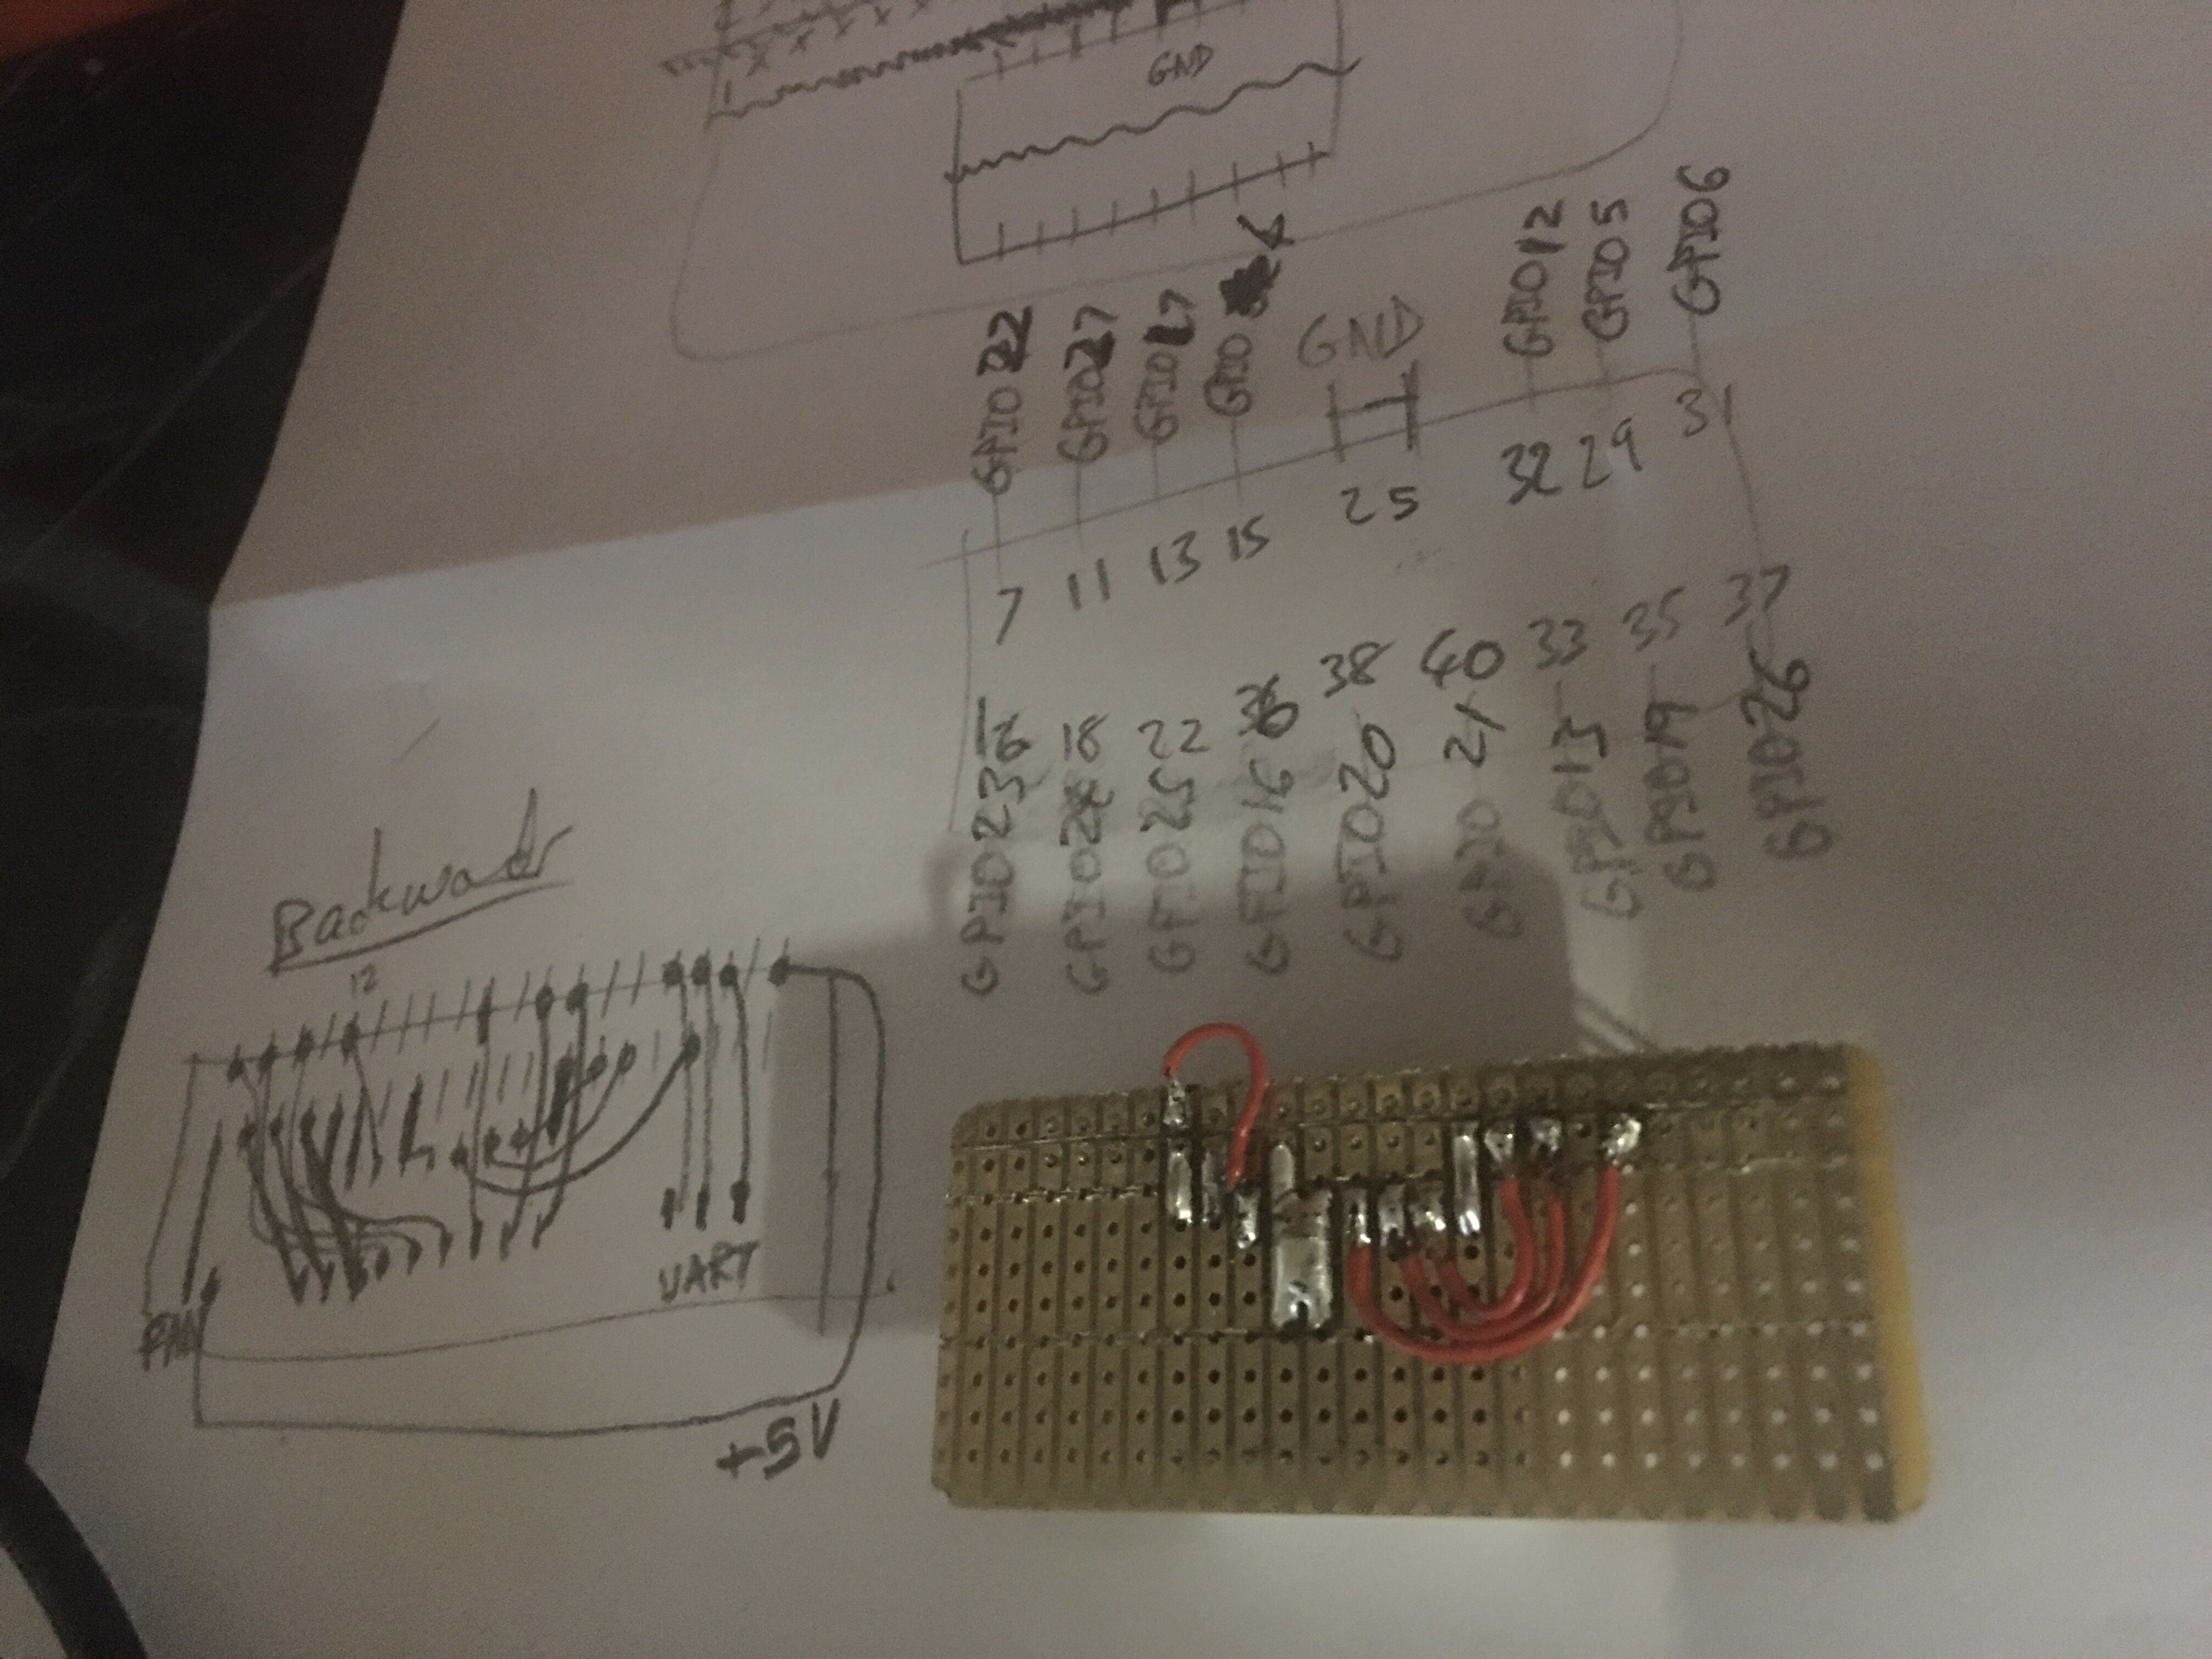 GND
GPIO22 GPIO27 GPIO17 GPIO4 GND GPIO12 GPIO5 GPIO6
7 11 13 15 25 32 29 31
16 18 22 36 38 40 33 35 37
GPIO23 GPIO24 GPIO25 GPIO16 GPIO20 GPIO 21 GPIO13 GPIO19 GPIO26
Backward
12
UART
FAN
+5V